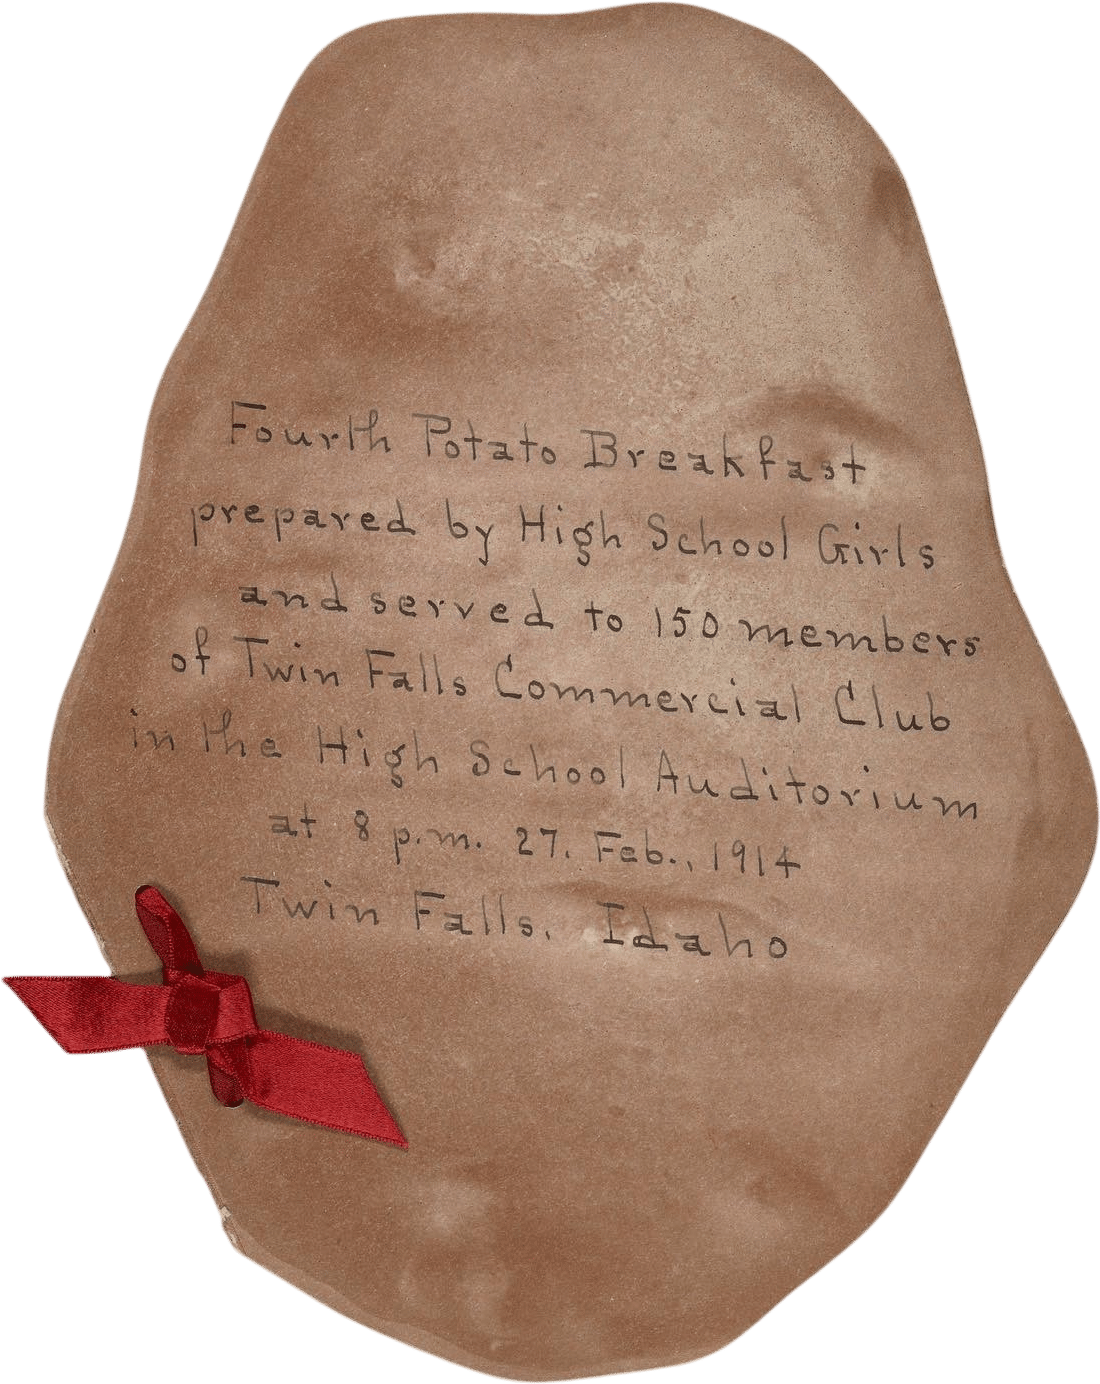 Fourth Potato Breakfast
prepared by High School Girls
and served to 150 members
of Twin Falls Commercial Club
in the High School Auditorium
at 8 p.m. 27. Feb., 1914
Twin Falls. Idaho